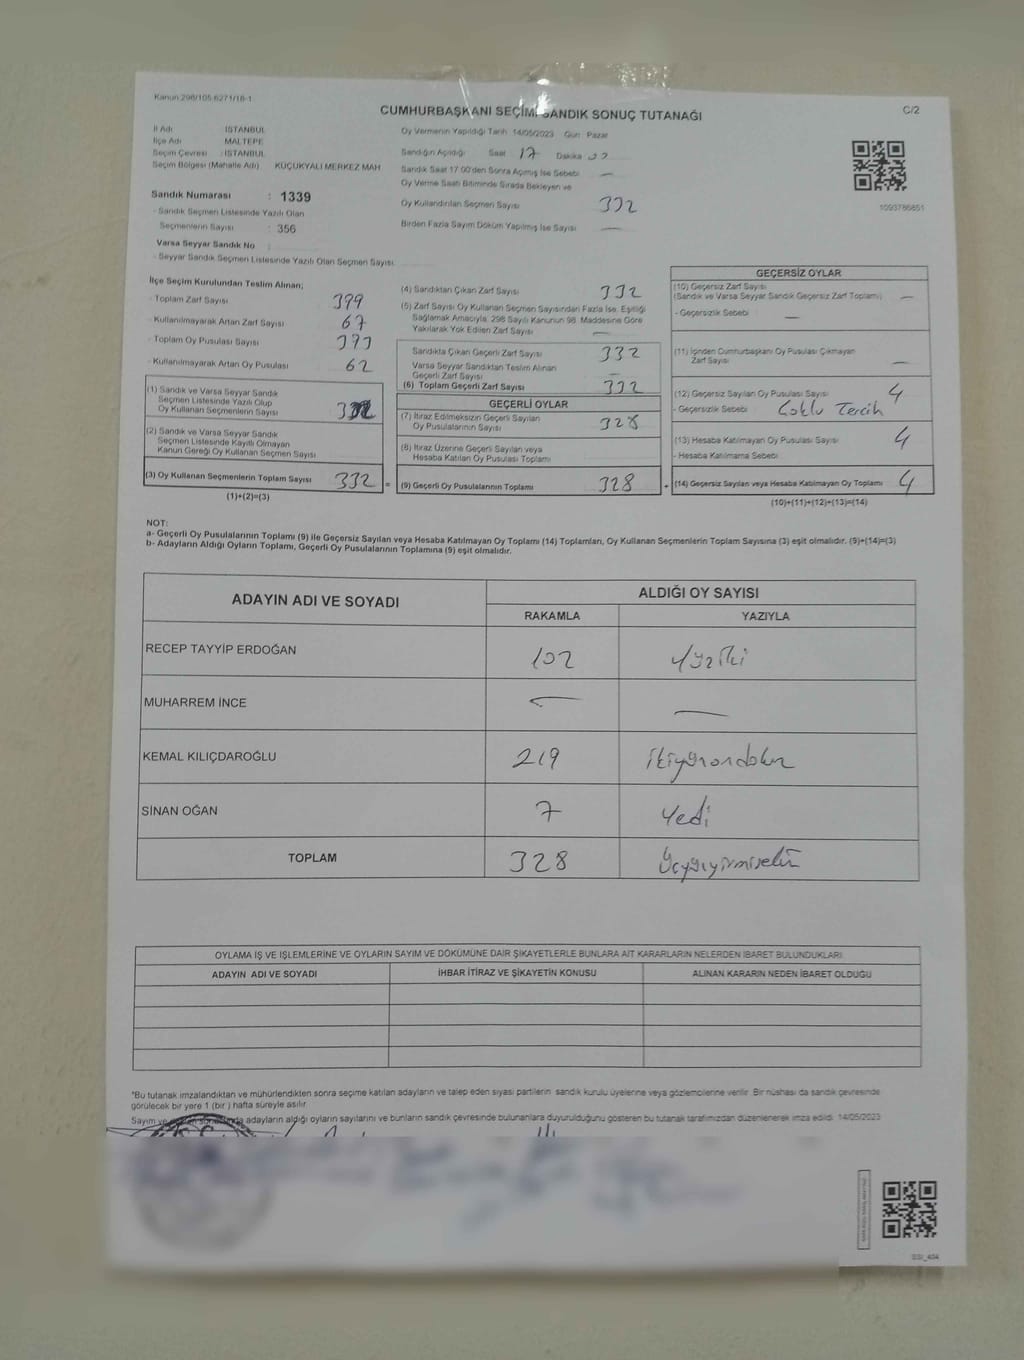 Kanun:298/105.6271/18-1
C/2
CUMHURBAŞKANI SEÇİMİ SANDIK SONUÇ TUTANAĞI
İl Adı : İSTANBUL
İlçe Adı : MALTEPE
Seçim Çevresi : İSTANBUL
Seçim Bölgesi (Mahalle Adı) : KÜÇÜKYALI MERKEZ MAH
Sandık Numarası : 1339
- Sandık Seçmen Listesinde Yazılı Olan
Seçmenlerin Sayısı : 356
Varsa Seyyar Sandık No :
- Seyyar Sandık Seçmen Listesinde Yazılı Olan Seçmen Sayısı:
Oy Vermenin Yapıldığı Tarih: 14/05/2023 Gün: Pazar
Sandığın Açıldığı: Saat 17 Dakika
Sandık Saat 17:00'den Sonra Açılmış İse Sebebi —
Oy Verme Saati Bitiminde Sırada Bekleyen ve
Oy Kullandırılan Seçmen Sayısı 332
Birden Fazla Sayım Döküm Yapılmış İse Sayısı —
1093786851
İlçe Seçim Kurulundan Teslim Alınan;
- Toplam Zarf Sayısı 399
- Kullanılmayarak Artan Zarf Sayısı 67
- Toplam Oy Pusulası Sayısı
- Kullanılmayarak Artan Oy Pusulası 62
(1) Sandık ve Varsa Seyyar Sandık
Seçmen Listesinde Yazılı Olup
Oy Kullanan Seçmenlerin Sayısı 332
(2) Sandık ve Varsa Seyyar Sandık
Seçmen Listesinde Kayıtlı Olmayan
Kanun Gereği Oy Kullanan Seçmen Sayısı
(3) Oy Kullanan Seçmenlerin Toplam Sayısı 332
(1)+(2)=(3)
(4) Sandıktan Çıkan Zarf Sayısı 332
(5) Zarf Sayısı Oy Kullanan Seçmen Sayısından Fazla İse, Eşitliği
Sağlamak Amacıyla, 298 Sayılı Kanunun 98. Maddesine Göre
Yakılarak Yok Edilen Zarf Sayısı —
Sandıkta Çıkan Geçerli Zarf Sayısı 332
Varsa Seyyar Sandıktan Teslim Alınan
Geçerli Zarf Sayısı —
(6) Toplam Geçerli Zarf Sayısı 332
GEÇERLİ OYLAR
(7) İtiraz Edilmeksizin Geçerli Sayılan
Oy Pusulalarının Sayısı 328
(8) İtiraz Üzerine Geçerli Sayılan veya
Hesaba Katılan Oy Pusulası Toplamı
= (9) Geçerli Oy Pusulalarının Toplamı 328
GEÇERSİZ OYLAR
(10) Geçersiz Zarf Sayısı
(Sandık ve Varsa Seyyar Sandık Geçersiz Zarf Toplamı) —
- Geçersizlik Sebebi —
(11) İçinden Cumhurbaşkanı Oy Pusulası Çıkmayan
Zarf Sayısı —
(12) Geçersiz Sayılan Oy Pusulası Sayısı 4
- Geçersizlik Sebebi Çoklu Tercih
(13) Hesaba Katılmayan Oy Pusulası Sayısı 4
- Hesaba Katılmama Sebebi
+ (14) Geçersiz Sayılan veya Hesaba Katılmayan Oy Toplamı 4
(10)+(11)+(12)+(13)=(14)
NOT:
a- Geçerli Oy Pusulalarının Toplamı (9) ile Geçersiz Sayılan veya Hesaba Katılmayan Oy Toplamı (14) Toplamları, Oy Kullanan Seçmenlerin Toplam Sayısına (3) eşit olmalıdır. (9)+(14)=(3)
b- Adayların Aldığı Oyların Toplamı, Geçerli Oy Pusulalarının Toplamına (9) eşit olmalıdır.
ADAYIN ADI VE SOYADI ALDIĞI OY SAYISI
RAKAMLA YAZIYLA
RECEP TAYYİP ERDOĞAN 102 Yüziki
MUHARREM İNCE — —
KEMAL KILIÇDAROĞLU 219 ikiyüzondokuz
SİNAN OĞAN 7 Yedi
TOPLAM 328 Üçyüzyirmisekiz
OYLAMA İŞ VE İŞLEMLERİNE VE OYLARIN SAYIM VE DÖKÜMÜNE DAİR ŞİKAYETLERLE BUNLARA AİT KARARLARIN NELERDEN İBARET BULUNDUKLARI
ADAYIN ADI VE SOYADI İHBAR İTİRAZ VE ŞİKAYETİN KONUSU ALINAN KARARIN NEDEN İBARET OLDUĞU
*Bu tutanak imzalandıktan ve mühürlendikten sonra seçime katılan adayların ve talep eden siyasi partilerin sandık kurulu üyelerine veya gözlemcilerine verilir. Bir nüshası da sandık çevresinde
görülecek bir yere 1 (bir ) hafta süreyle asılır.
Sayım ve adayların aldığı oyların sayılarını ve bunların sandık çevresinde bulunanlara duyurulduğunu gösteren bu tutanak tarafımızdan düzenlenerek imza edildi. 14/05/2023
SSI_404